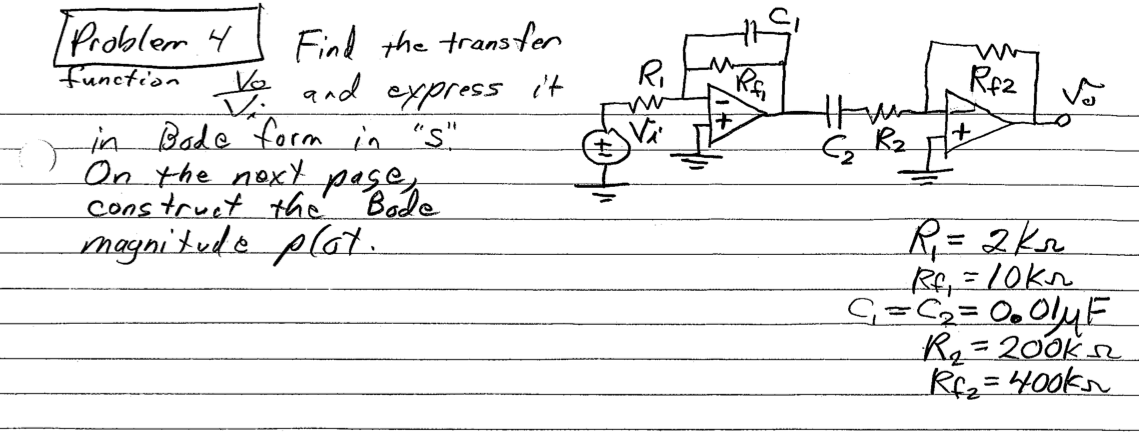 Problem 4 Find the transfer
function Vo/Vi and express it
in Bode form in "S".
On the next page,
construct the Bode
magnitude plot.
C1
R1
Rf1
Vi
C2
R2
Rf2
Vo
R1 = 2KΩ
Rf1 = 10KΩ
C1 = C2 = 0.01μF
R2 = 200KΩ
Rf2 = 400KΩ